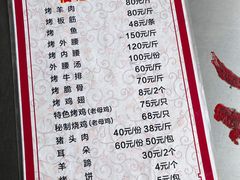 烤羊肉 80元/斤
烤板筋 80元/斤
烤鱼 48元/条
烤外腰 150元/斤
烤内腰 120元/斤
外腰汤 100元/份
烤牛排 60元/斤
烤脆骨 70元/斤
烤鸡翅 8元/2个
特色烤鸡(老母鸡) 75元/只
秘制烧鸡(老母鸡) 68元/只
猪头肉 40元/份 38元/斤
耳朵 60元/份 50元/包
羊蹄 30元/2个
4元/个
5元/包